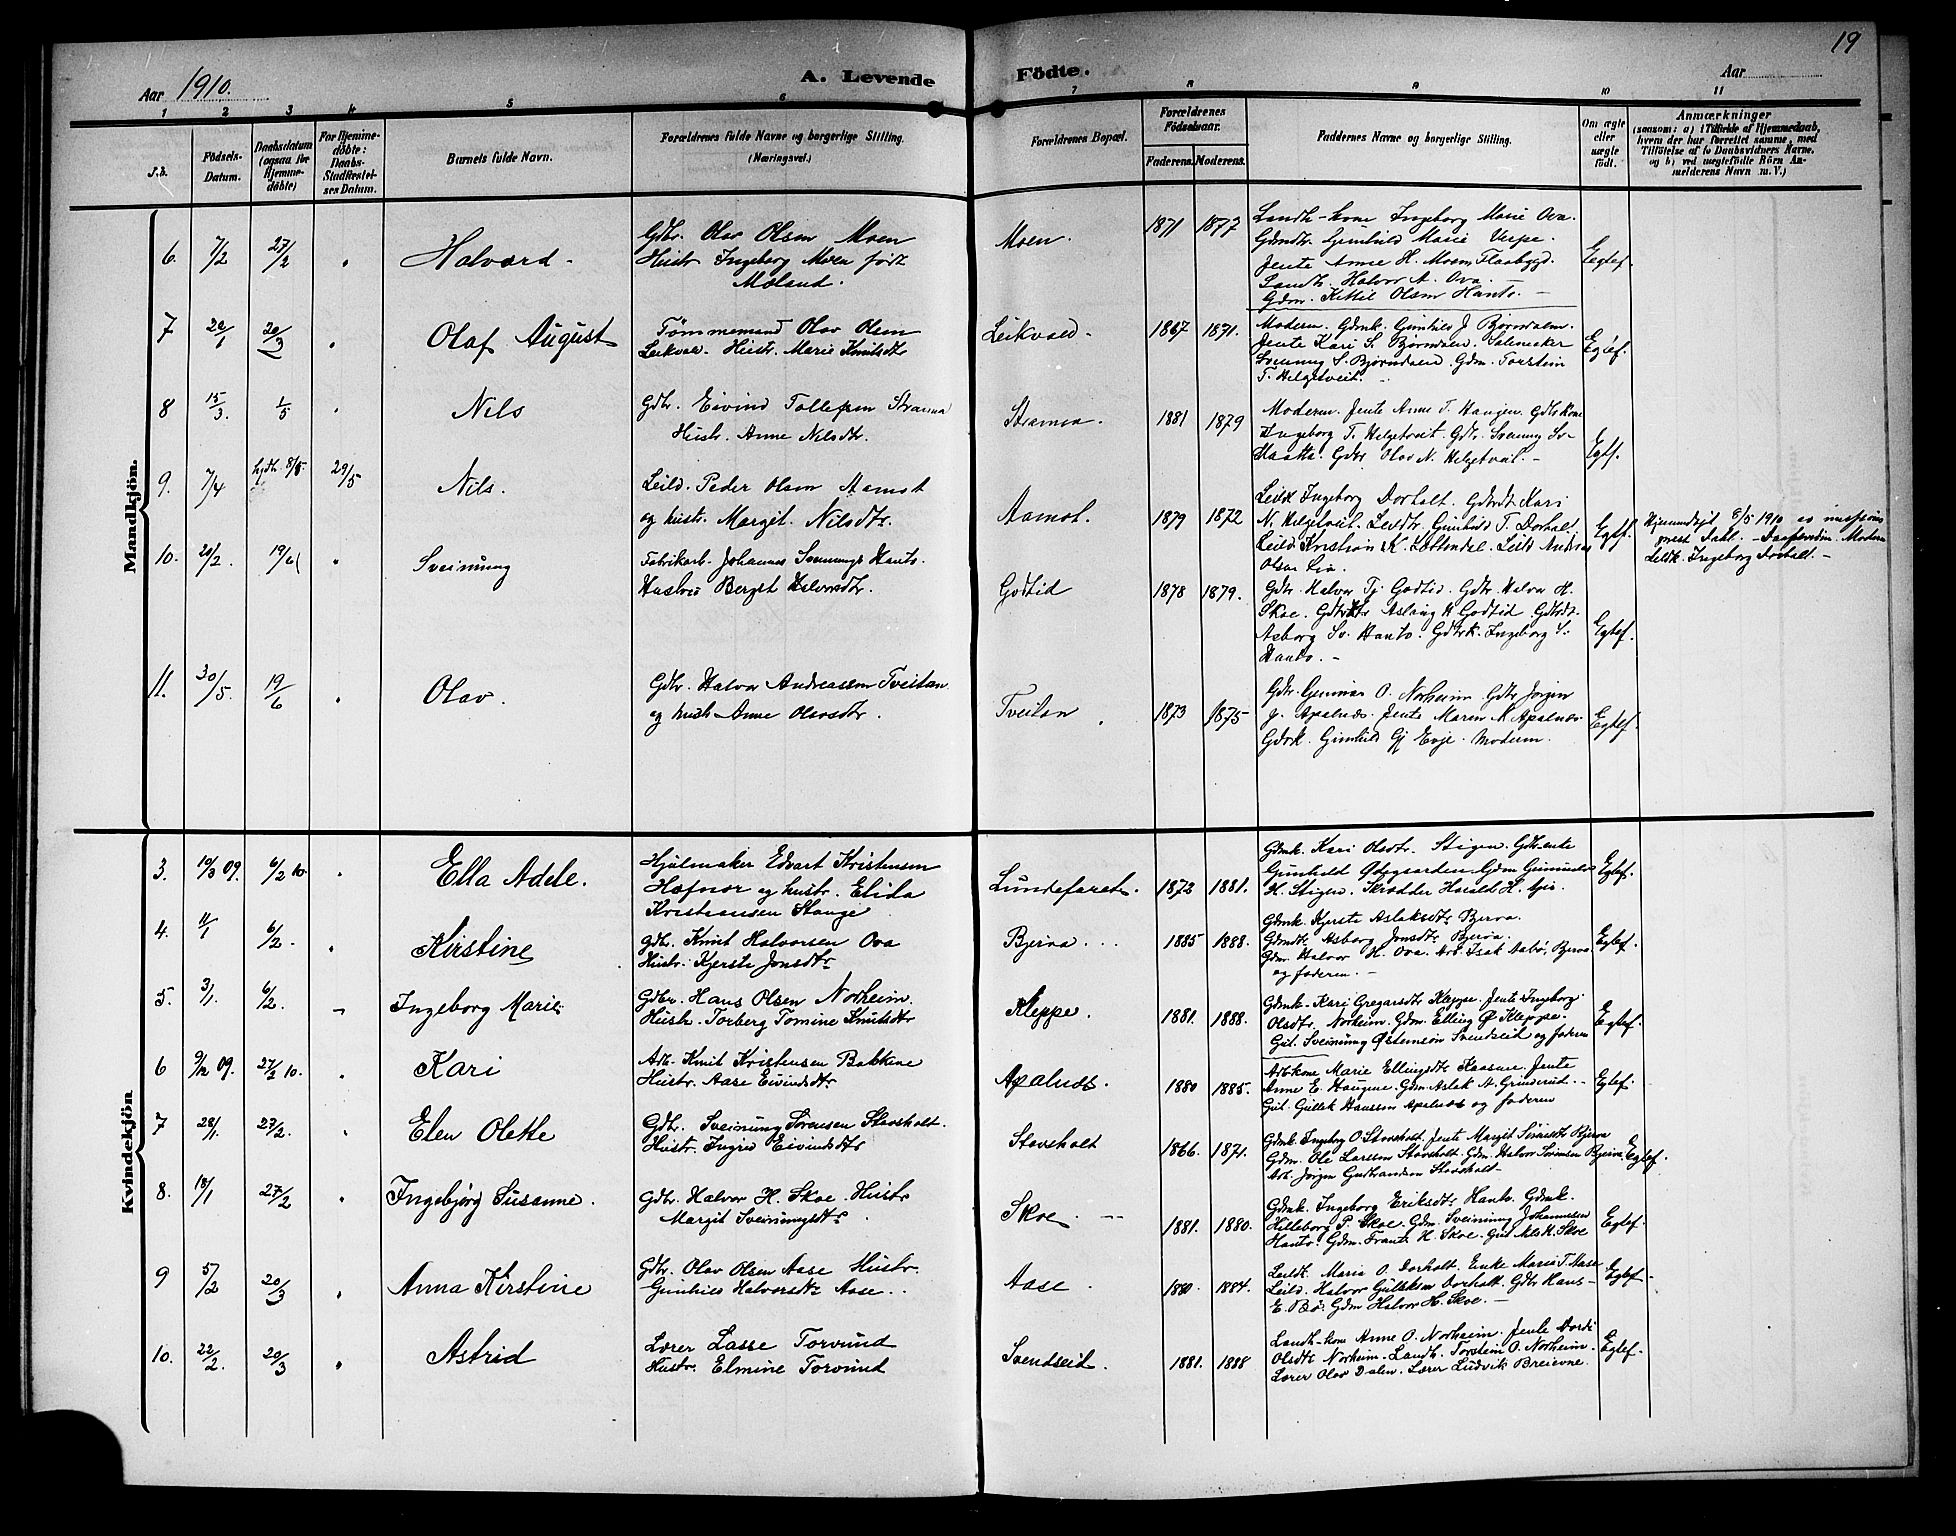 19
Aar 1910.
A. Levende Födte.
Aar
1 2 3 4 5 6 7 8 9 10 11
S.b.
Födsels-Datum.
Daabsdatum (ogsaa for Hjemme-döbte)
For Hjemme-döbte: Daabs-Stadfæstel-ses Datum.
Barnets fulde Navn.
Forældrenes fulde Navne og borgerlige Stilling.
(Næringsvei.)
Forældrenes Bopæl.
Forældrenes Födselsaar.
Faderens. Moderens.
Faddernes Navne og borgerlige Stilling.
Om ægte eller uægte födt.
Anmærkninger
(saasom: a) i Tilfælde af Hjemmedaab,
hvem der har forrettet samme, med
Tilföielse af to Daabsvidners Navne,
og b) ved uægtefödte Börn An-
melderens Navn m. V.)
Mandkjön.
6. 7/2 27/2 " Halvard.
Gdbr. Olav Olsen Moen
Hustr. Ingeborg Moen født
Moland.
Moen. 1871 1877
Landh-kone Ingeborg Marie Ova.
Gdmdtr. Gunhild Marie Verpe.
Jente Anne H. Moen Flaabygd.
Landh. Halvor A. Ova.
Gdm. Kittil Olsen Hanto.
Egtef.
7 20/1 20/3 " Olaf August
Tømmermand Olav Olsen
Leikvold. Hustr. Marie Knutsdtr
Leikvold 1867 1871.
Moderen. Gdmk. Gunhild J Bjørndalen.
Jente Kari S. Bjørndalen. Salemaker
Sveinung S. Bjørndalen. Gdm. Torstein
T. Helgetveit.
Egtef.
8 15/3. 1/5 " Nils
Gdbr. Eivind Tollefsen Straman
Hustr. Anne Nilsdtr.
Straman. 1881 1879
Moderen. Jente Anne T. Haugen. Gdbrkone
Ingeborg T. Helgetveit. Gdbr. Sveinung Sv-
Haatta. Gdbr Olav N. Helgetveit.
Egtf.
9. 7/4 hjdb. 8/5. 29/5 Nils.
Leild. Peder Olsen Aamot
og hustr. Margit. Nilsdtr.
Aamot. 1879 1872
Leildk Ingeborg Dorholt. Gdbrdt. Kari
N. Helgetveit. Leildtr. Gunhild T. Dorholt
Leild Kristian K. Loftsdal. Leild Andreas
Olsen Lia.
Egtf.
Hjemmedøpt 8/5 1910 av missions
prest Dahl. Daapsvidne. Modern
Leildk. Ingeborg Dorholt.
10. 20/2. 19/6 " Sveinung
Fabrikarb. Johannes Sveinungs. Hanto.
Hustru Berget Halvorsdtr.
Godtid 1878 1879.
Gdbr. Halvor Tj Godtid. Gdbr. Halvor H.
Skoe. Gdbrdtr Aslaug H Godtid. Gdbrdt.
Asborg Sv. Hanto. Gdbrk. Ingeborg S.
Hanto.
Egtef.
11. 30/5. 19/6 " Olav.
Gdbr. Halvor Andreassen Tveitan
og hustr Anne Olavsdtr.
Tveitan 1873 1875
Gdbr. Gunnar O. Norheim Gdbr Jørgen
J. Apalnæs. Jente Maren N Apalnæs
Gdbrk. Gunhild Gj Evje. Moderen.
Egtef.
Kvindekjön
3. 19/3 09. 6/2 10 " Ella Adele.
Hjulmaker Edvart Kristensen
Hafnor og hustr. Elida
Kristiansen Stange
Lundefaret. 1873 1881.
Gdmk. Kari Olsdtr. Stigen. Gdbrenke
Gunhild Ødegaarden. Gdm Gunnuld
H. Stigen. Skrædder Harald H. Lia.
Egtef.
4. 11/1 6/2. " Kirstine
Gdbr. Knut Halvorsen Ova
Hustr. Kjersti Jonsdtr
Bjerva 1885 1888.
Gdmk. Kjerste Aslaksdtr Bjerva.
Gdmdtr. Asborg Jonsdtr Bjerva.
Gdm. Halvor H. Ova. Arb. Isak Aabø, Bjerva
og faderen.
Egtef.
5. 3/1. 6/2. " Ingeborg Marie
Gdbr. Hans Olsen Norheim.
Hustr. Torberg Tomine Knutsdtr
Kleppe. 1881. 1888.
Gdmk. Kari Gregarsdtr Kleppe. Jente Ingeborg
Olsdtr. Norheim. Gdm. Elling Ø Kleppe.
Gut. Sveinung Østensøn Svendseid og faderen
Egtef.
6 9/12 09. 27/2 10. " Kari
Arb. Knut Kristensen Bakkene
Hustr. Aase Eivindsdtr
Apalnæs. 1880 1885.
Arbkone Marie Ellingsdtr Kaasene. Jente
Anne E. Haugene. Gdm. Aslak A. Grinderud.
Gut. Gullik Hanssen Apalnæs og faderen
Egtef.
7 28/1. 27/2. " Elen Olette
Gdbr. Sveinung Sørensen Stavsholt.
Hustr. Ingrid Eivindsdtr
Stavsholt 1866. 1871.
Gdmk. Ingeborg O. Stavsholt. Jente Margit Sørensdtr Bjerva
Gdm. Ole Larssen Stavsholt. Gdm. Halvor Sørensen Bjerva.
Arb. Jørgen Stavsholt
Egtef.
8. 18/1 27/2 " Ingebjørg Susanne.
Gdbr. Halvor H. Skoe. Hustr
Margit Sveinungsdtr.
Skoe. 1881. 1880.
Gdmk. Ingeborg Eriksdtr Hanto. Gdmk.
Hilleborg P. Skoe. Gdm. Sveinung Johannesen
Hanto. Gdm. Frantz H. Skoe. Gut Nils H. Skoe
Egtef.
9 5/2 20/3 " Anna Kirstine
Gdbr. Olav Olsen Aase Hustr.
Gunhild Halvorsdtr Aase.
Aase. 1880. 1884.
Leildk. Maria O. Dorholt. Enke Maria T. Aase
Leild. Halvor Gulleksen Dorholt. Gdbr Hans
E. Bø. Gdm Halvor H. Skoe.
Egtef
10. 22/2. 20/3 " Astrid
Lærer Lasse Torvund
Hustr. Elmine Torvund
Svendseid. 1881. 1888
Landh-kone Anne O. Norheim. Jente Dordi
Olsdtr Norheim. Landh. Torstein O. Norheim.
Lærer Olav Dalen. Lærer Ludvik Breievne.
Egtef.